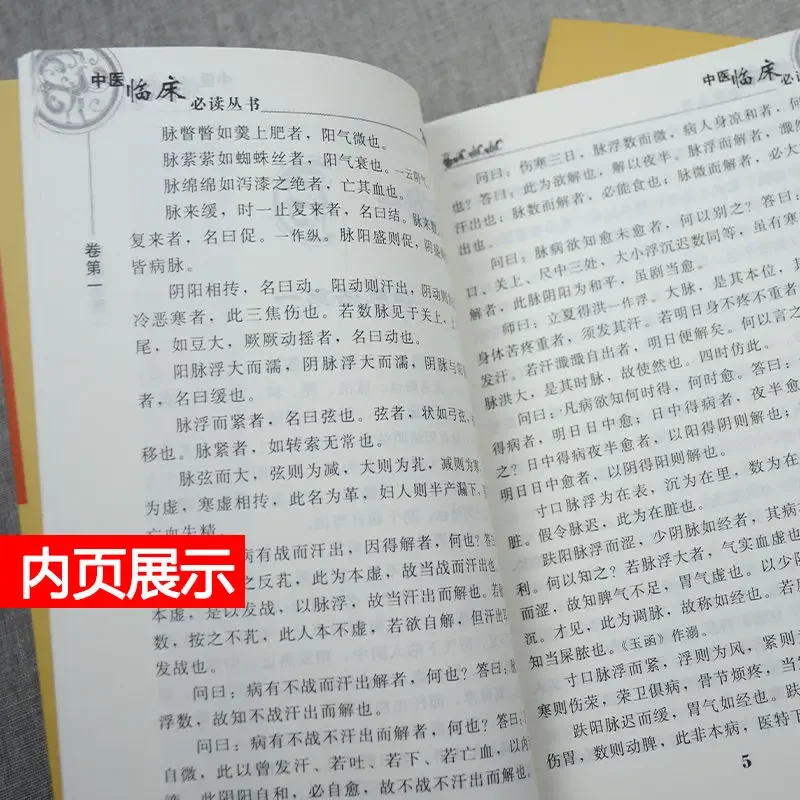 中医临床必读丛书
卷第一
脉瞥瞥如羹上肥者，阳气微也。
脉萦萦如蜘蛛丝者，阳气衰也。一云阴气。
脉绵绵如泻漆之绝者，亡其血也。
脉来缓，时一止复来者，名曰结。脉来数
复来者，名曰促。一作纵。脉阳盛则促，阴盛
皆病脉。
阴阳相抟，名曰动。阳动则汗出，阴动则
冷恶寒者，此三焦伤也。若数脉见于关上，上
尾，如豆大，厥厥动摇者，名曰动也。
阳脉浮大而濡，阴脉浮大而濡，阴脉与
者，名曰缓也。
脉浮而紧者，名曰弦也。弦者，状如弓弦，
移也。脉紧者，如转索无常也。
脉弦而大，弦则为减，大则为芤，减则为寒
为虚，寒虚相抟，此名为革，妇人则半产漏下，
亡血失精。
病有战而汗出，因得解者，何也？答
之反芤，此为本虚，故当战而汗出也
本虚，是以发战，以脉浮，故当汗出而解也。
数，按之不芤，此人本不虚，若欲自解，但汗出
发战也。
问曰：病有不战而汗出解者，何也？答曰：脉
浮数，故知不战汗出而解也。
问曰：病有不战不汗出而解者，何也？答曰：
自微，此以曾发汗、若吐、若下、若亡血，以内
此阴阳自和，必自愈，故不战不汗出而解也
内页展示
中医临床必读
问曰：伤寒三日，脉浮数而微，病人身凉和者，何
也？答曰：此为欲解也，解以夜半。脉浮而解者，濈然
汗出也；脉数而解者，必能食也；脉微而解者，必大
出也。
问曰：脉病欲知愈未愈者，何以别之？答曰：
口、关上、尺中三处，大小浮沉迟数同等，虽有寒
解者，此脉阴阳为和平，虽剧当愈。
师曰：立夏得洪一作浮。大脉，是其本位，其
身体苦疼重者，须发其汗。若明日身不疼不重者
发汗。若汗濈濈自出者，明日便解矣。何以言之
脉洪大，是其时脉，故使然也。四时仿此。
问曰：凡病欲知何时得，何时愈。答曰：
得病者，明日日中愈；日中得病者，夜半愈
之？日中得病夜半愈者，以阳得阴则解也；
明日日中愈者，以阴得阳则解也。
寸口脉浮为在表，沉为在里，数为在
脏。假令脉迟，此为在脏也。
趺阳脉浮而涩，少阴脉如经者，其病
利。何以知之？若脉浮大者，气实血虚也
而涩，故知脾气不足，胃气虚也。以少阴
沉。才见，此为调脉，故称如经也。若
知当屎脓也。《玉函》作溺。
寸口脉浮而紧，浮则为风，紧则
寒则伤荣，荣卫俱病，骨节烦疼，当
趺阳脉迟而缓，胃气如经也。趺
伤胃，数则动脾，此非本病，医特下
5